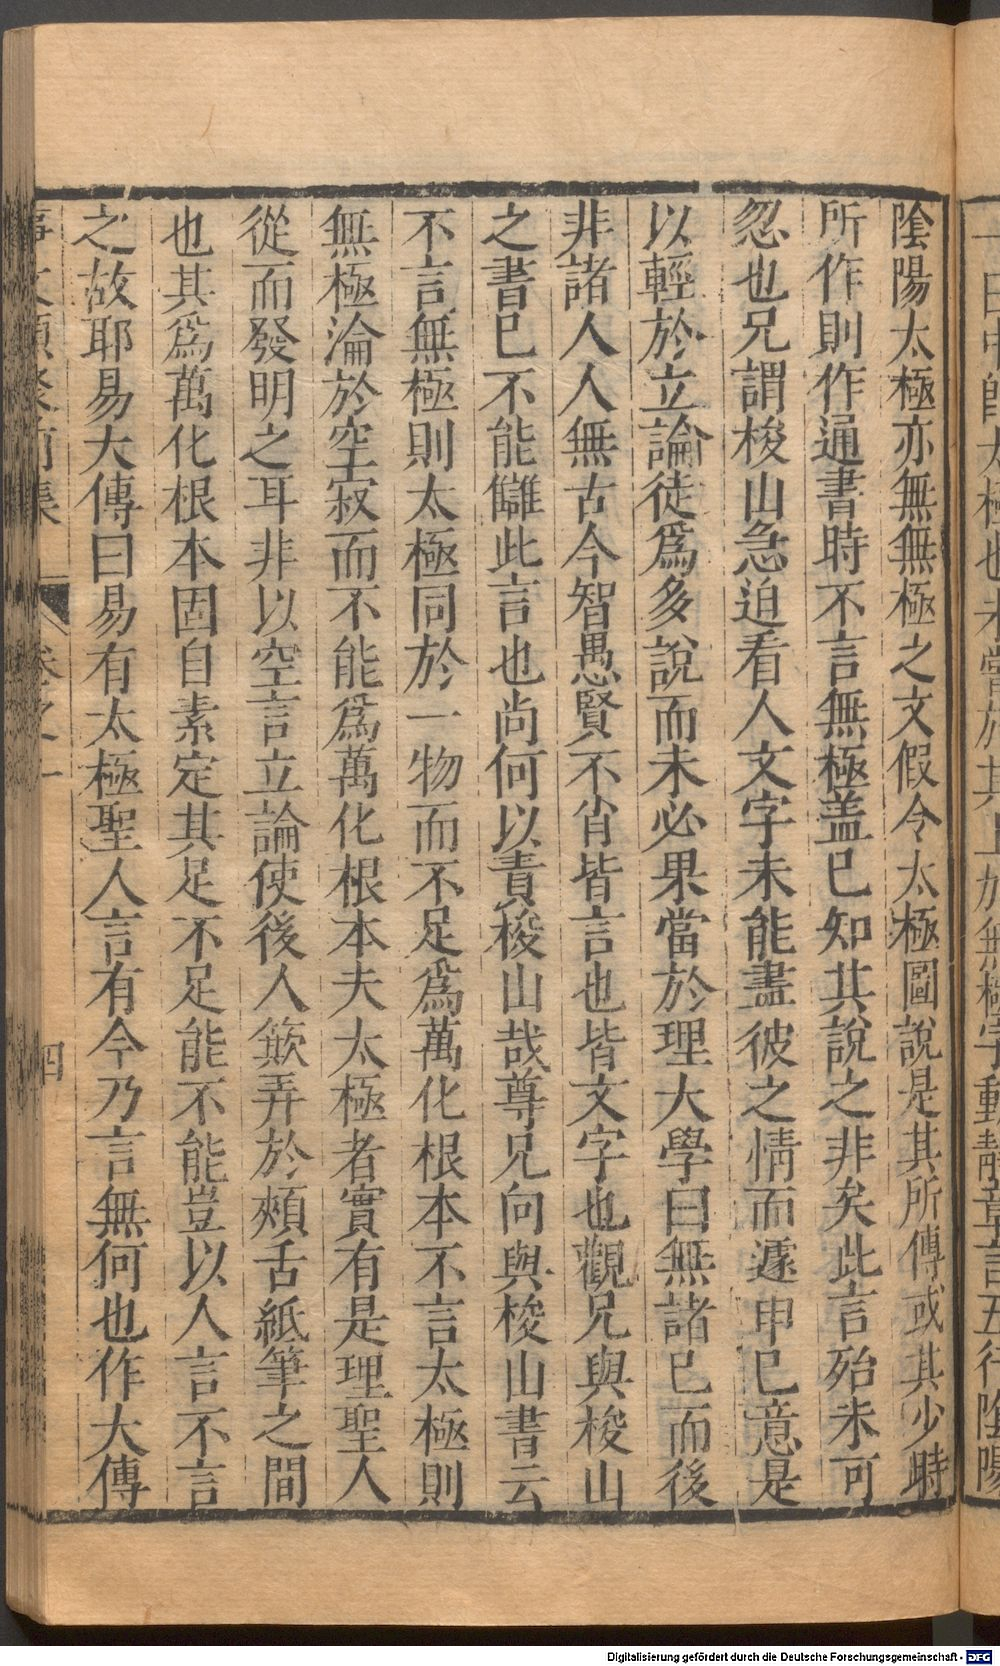 陰陽太極亦無無極之文假令太極圖說是其所傳或其少時
所作則作通書時不言無極盖已知其說之非矣此言殆未可
忽也兄謂梭山急迫看人文字未能盡彼之情而遽申已意是
以輕於立論徒爲多說而未必果當於理大學曰無諸已而後
非諸人人無古今智愚賢不肖皆言也皆文字也觀兄與梭山
之書已不能讎此言也尚何以責梭山哉尊兄向與梭山書云
不言無極則太極同於一物而不足爲萬化根本不言太極則
無極淪於空寂而不能爲萬化根本夫太極者實有是理聖人
從而發明之耳非以空言立論使後人簸弄於頰舌紙筆之間
也其爲萬化根本固自素定其足不足能不能豈以人言不言
之故耶易大傳曰易有太極聖人言有今乃言無何也作大傳
事文類聚前集 卷之一 四
Digitalisierung gefördert durch die Deutsche Forschungsgemeinschaft - DFG